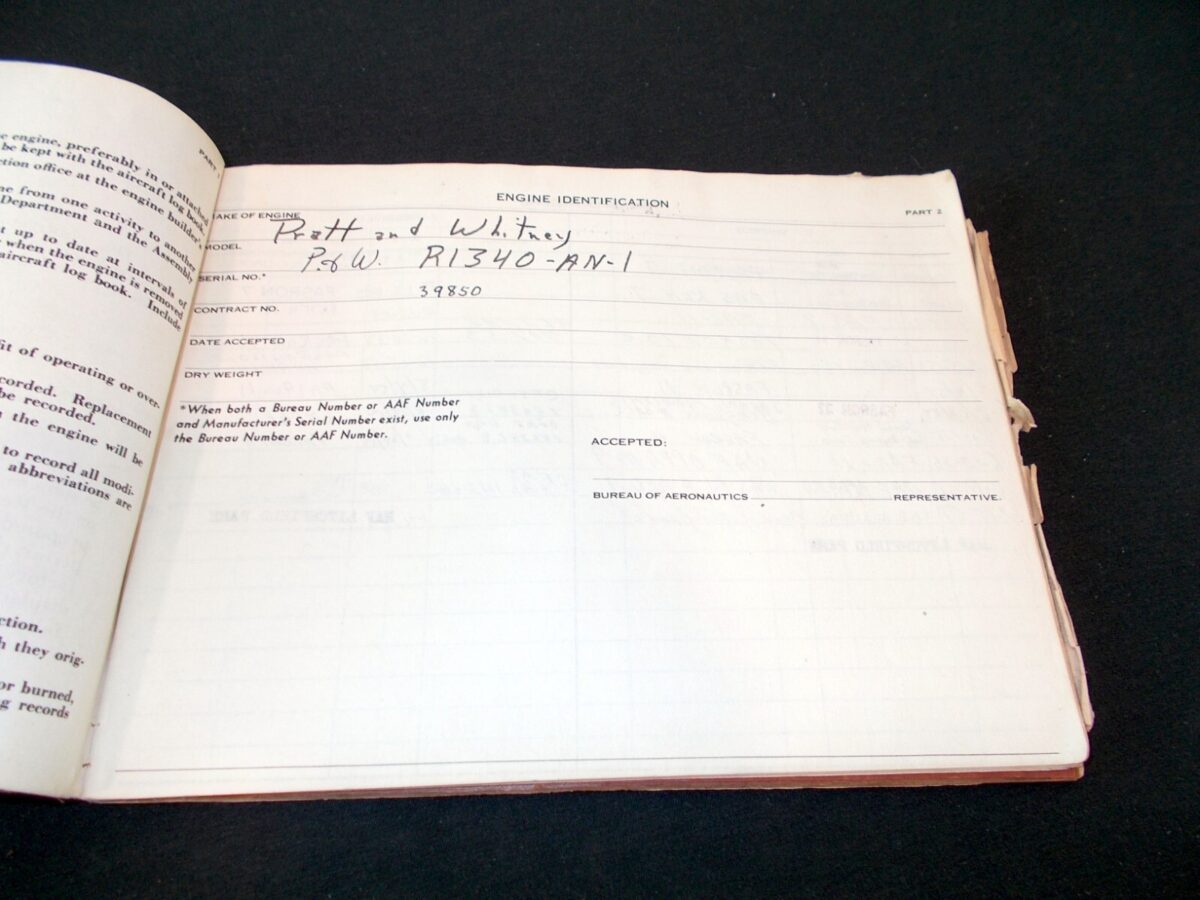 PART 1
e engine, preferably in or attached
be kept with the aircraft log book.
ction office at the engine builder's
ne from one activity to another
Department and the Assembly
t up to date at intervals of
when the engine is removed
aircraft log book. Include
fit of operating or over-
corded. Replacement
be recorded.
n the engine will be
to record all modi-
abbreviations are
ction.
h they orig-
or burned,
g records
ENGINE IDENTIFICATION
PART 2
MAKE OF ENGINE Pratt and Whitney
MODEL P.&W. R1340-AN-1
SERIAL NO.* 39850
CONTRACT NO.
DATE ACCEPTED
DRY WEIGHT
*When both a Bureau Number or AAF Number
and Manufacturer's Serial Number exist, use only
the Bureau Number or AAF Number.
ACCEPTED:
BUREAU OF AERONAUTICS REPRESENTATIVE.